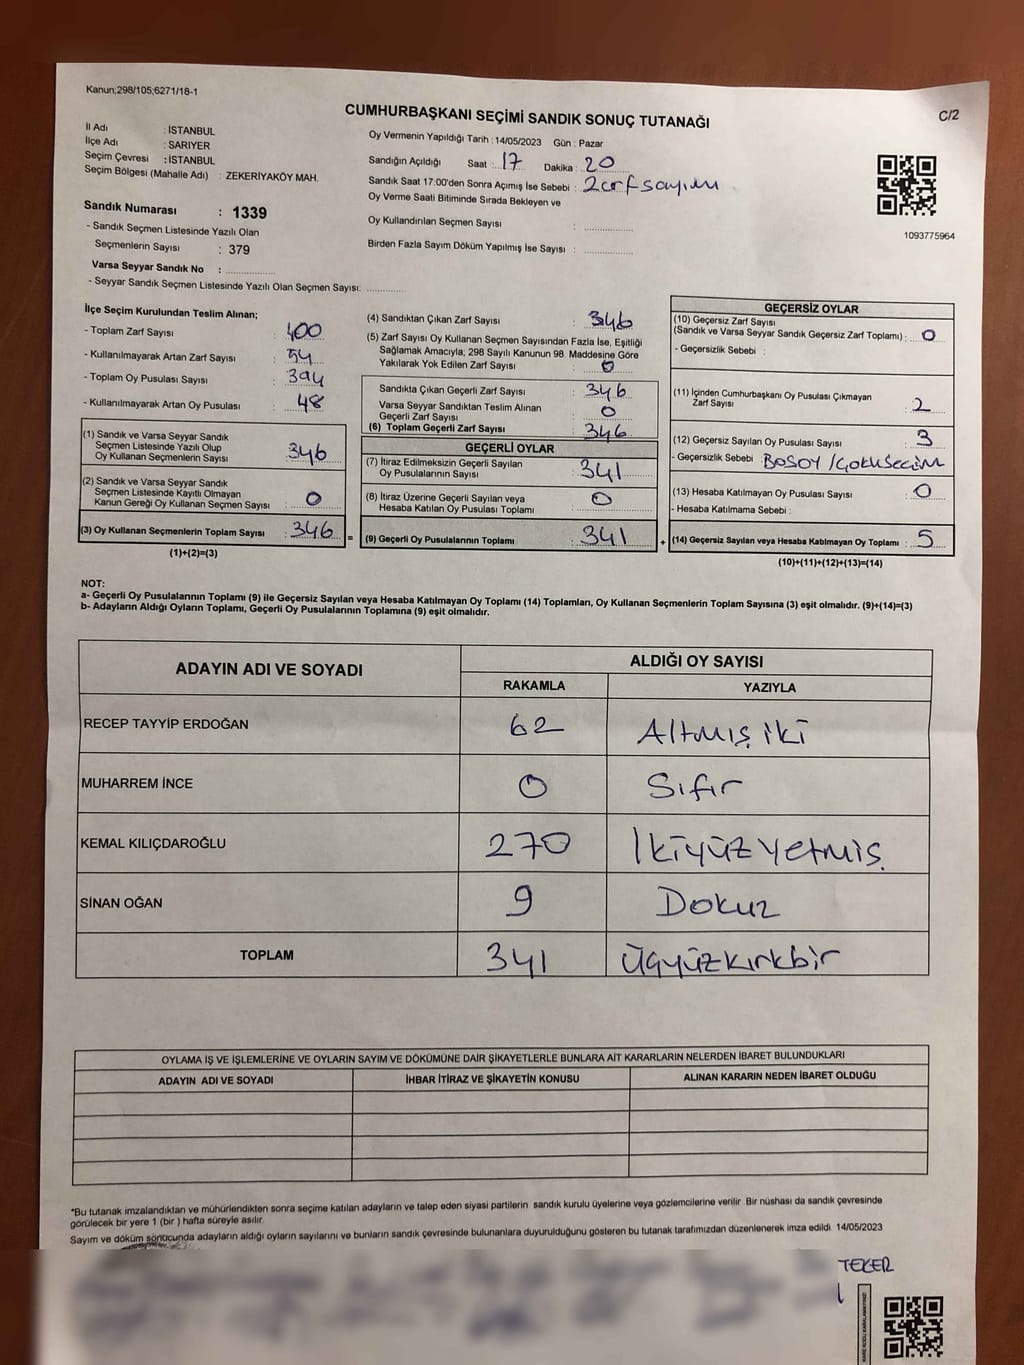 Kanun;298/105;6271/18-1
C/2
CUMHURBAŞKANI SEÇİMİ SANDIK SONUÇ TUTANAĞI
İl Adı : İSTANBUL
İlçe Adı : SARIYER
Seçim Çevresi : İSTANBUL
Seçim Bölgesi (Mahalle Adı) : ZEKERİYAKÖY MAH.
Sandık Numarası : 1339
- Sandık Seçmen Listesinde Yazılı Olan
Seçmenlerin Sayısı : 379
Varsa Seyyar Sandık No : ............
- Seyyar Sandık Seçmen Listesinde Yazılı Olan Seçmen Sayısı: ............
Oy Vermenin Yapıldığı Tarih : 14/05/2023 Gün : Pazar
Sandığın Açıldığı Saat : 17 Dakika : 20
Sandık Saat 17:00'den Sonra Açımış İse Sebebi : zarf sayım
Oy Verme Saati Bitiminde Sırada Bekleyen ve
Oy Kullandırılan Seçmen Sayısı : ............
Birden Fazla Sayım Döküm Yapılmış İse Sayısı : ............
1093775964
İlçe Seçim Kurulundan Teslim Alınan;
- Toplam Zarf Sayısı : 400
- Kullanılmayarak Artan Zarf Sayısı : 54
- Toplam Oy Pusulası Sayısı : 394
- Kullanılmayarak Artan Oy Pusulası : 48
(1) Sandık ve Varsa Seyyar Sandık
Seçmen Listesinde Yazılı Olup
Oy Kullanan Seçmenlerin Sayısı : 346
(2) Sandık ve Varsa Seyyar Sandık
Seçmen Listesinde Kayıtlı Olmayan
Kanun Gereği Oy Kullanan Seçmen Sayısı : 0
(3) Oy Kullanan Seçmenlerin Toplam Sayısı : 346 =
(1)+(2)=(3)
(4) Sandıktan Çıkan Zarf Sayısı : 346
(5) Zarf Sayısı Oy Kullanan Seçmen Sayısından Fazla İse, Eşitliği
Sağlamak Amacıyla, 298 Sayılı Kanunun 98. Maddesine Göre
Yakılarak Yok Edilen Zarf Sayısı : 0
Sandıkta Çıkan Geçerli Zarf Sayısı : 346
Varsa Seyyar Sandıktan Teslim Alınan
Geçerli Zarf Sayısı : 0
(6) Toplam Geçerli Zarf Sayısı : 346
GEÇERLİ OYLAR
(7) İtiraz Edilmeksizin Geçerli Sayılan
Oy Pusulalarının Sayısı : 341
(8) İtiraz Üzerine Geçerli Sayılan veya
Hesaba Katılan Oy Pusulası Toplamı : 0
(9) Geçerli Oy Pusulalarının Toplamı : 341 +
GEÇERSİZ OYLAR
(10) Geçersiz Zarf Sayısı
(Sandık ve Varsa Seyyar Sandık Geçersiz Zarf Toplamı) : 0
- Geçersizlik Sebebi :
(11) İçinden Cumhurbaşkanı Oy Pusulası Çıkmayan
Zarf Sayısı : 2
(12) Geçersiz Sayılan Oy Pusulası Sayısı : 3
- Geçersizlik Sebebi : BOŞOY/ÇOKLUSEÇİM
(13) Hesaba Katılmayan Oy Pusulası Sayısı : 0
- Hesaba Katılmama Sebebi :
(14) Geçersiz Sayılan veya Hesaba Katılmayan Oy Toplamı : 5
(10)+(11)+(12)+(13)=(14)
NOT:
a- Geçerli Oy Pusulalarının Toplamı (9) ile Geçersiz Sayılan veya Hesaba Katılmayan Oy Toplamı (14) Toplamları, Oy Kullanan Seçmenlerin Toplam Sayısına (3) eşit olmalıdır. (9)+(14)=(3)
b- Adayların Aldığı Oyların Toplamı, Geçerli Oy Pusulalarının Toplamına (9) eşit olmalıdır.
ADAYIN ADI VE SOYADI ALDIĞI OY SAYISI
RAKAMLA YAZIYLA
RECEP TAYYİP ERDOĞAN 62 Altmış iki
MUHARREM İNCE 0 Sıfır
KEMAL KILIÇDAROĞLU 270 İkiyüz yetmiş
SİNAN OĞAN 9 Dokuz
TOPLAM 341 Üçyüzkırkbir
OYLAMA İŞ VE İŞLEMLERİNE VE OYLARIN SAYIM VE DÖKÜMÜNE DAİR ŞİKAYETLERLE BUNLARA AİT KARARLARIN NELERDEN İBARET BULUNDUKLARI
ADAYIN ADI VE SOYADI İHBAR İTİRAZ VE ŞİKAYETİN KONUSU ALINAN KARARIN NEDEN İBARET OLDUĞU
*Bu tutanak imzalandıktan ve mühürlendikten sonra seçime katılan adayların ve talep eden siyasi partilerin sandık kurulu üyelerine veya gözlemcilerine verilir. Bir nüshası da sandık çevresinde
görülecek bir yere 1 (bir ) hafta süreyle asılır.
Sayım ve döküm sonucunda adayların aldığı oyların sayılarını ve bunların sandık çevresinde bulunanlara duyurulduğunu gösteren bu tutanak tarafımızdan düzenlenerek imza edildi. 14/05/2023
TEKER